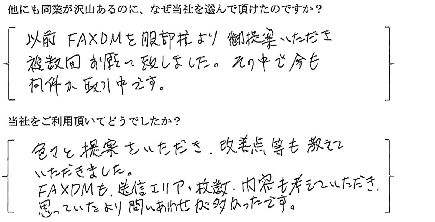 他にも同業が沢山あるのに、なぜ当社を選んで頂けたのですか?
以前 FAXDMを服部様より御提案いただき
複数回お願い致しました。その中で今も
何件か取引中です。
当社をご利用頂いてどうでしたか?
色々と提案をいただき、改善点等も教えて
いただきました。
FAXDMも、送信エリア・枚数・内容も考えていただき、
思っていたより問い合わせが多かったです。